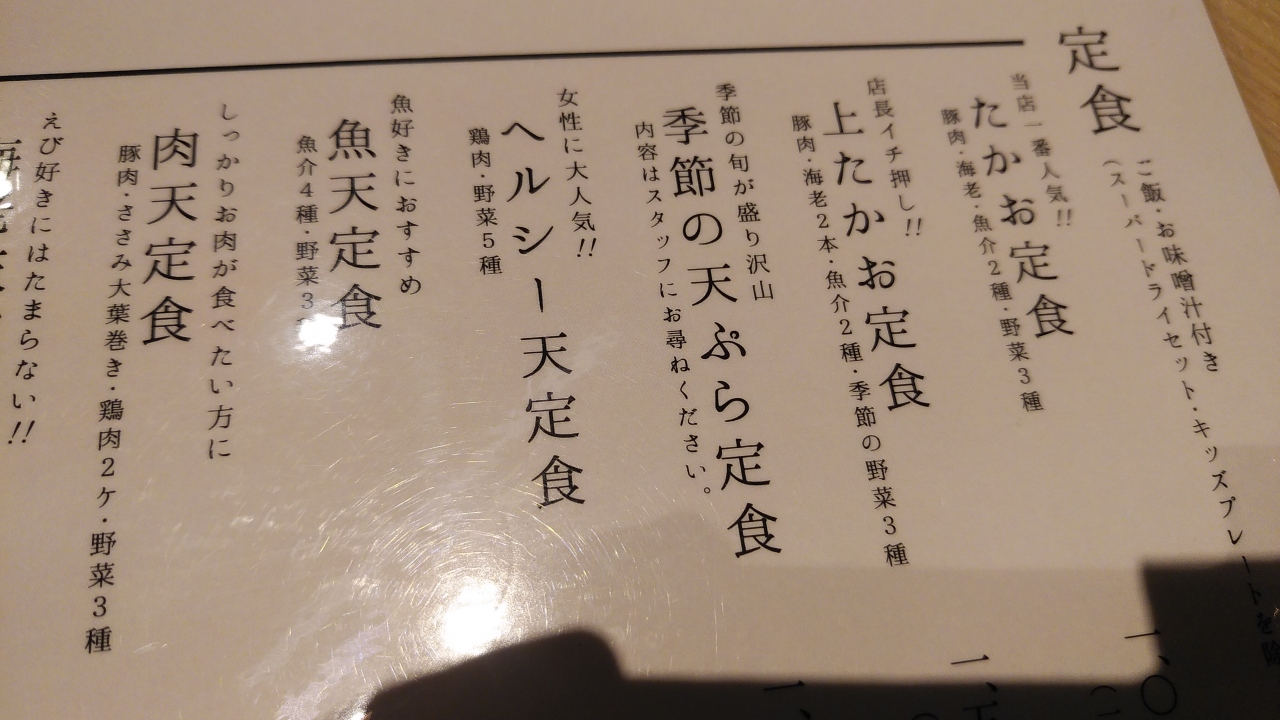 定食
ご飯・お味噌汁付き
(スーパードライセット・キッズプレートを除
当店一番人気!!
たかお定食
豚肉・海老・魚介2種・野菜3種
店長イチ押し!!
上たかお定食
豚肉・海老2本・魚介2種・季節の野菜3種
季節の旬が盛り沢山
季節の天ぷら定食
内容はスタッフにお尋ねください。
女性に大人気!!
ヘルシー天定食
鶏肉・野菜5種
魚好きにおすすめ
魚天定食
魚介4種・野菜3
しっかりお肉が食べたい方に
肉天定食
豚肉・ささみ大葉巻き・鶏肉2ケ・野菜3種
えび好きにはたまらない!!